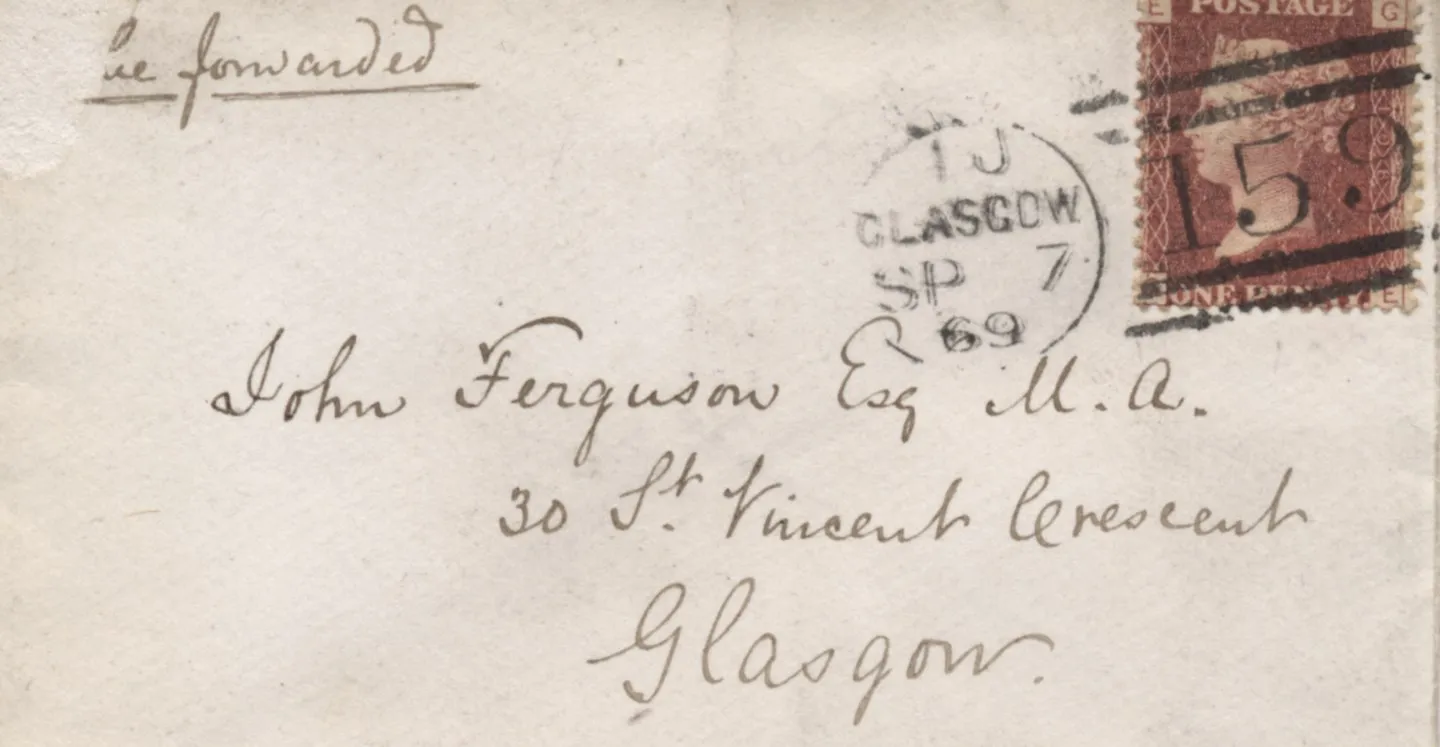 be forwarded
E POSTAGE G
159
ONE PENNY E
1 J
GLASGOW
SP 7
69
John Ferguson Esq M.A.
30 St. Vincent Crescent
Glasgow.